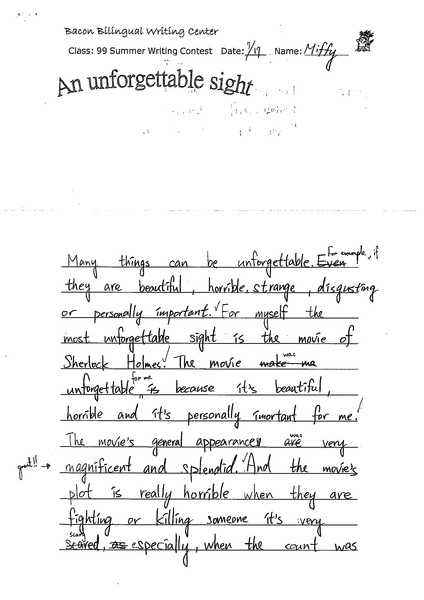 Bacon Bilingual Writing Center
Class: 99 Summer Writing Contest Date: 7/17 Name: Miffy
An unforgettable sight
Many things can be unforgettable. Even For example, if
they are beautiful, horrible, strange, disgusting
or personally important. For myself the
most unforgettable sight is the movie of
Sherlock Holmes. The movie make me was
unforgettable for me is because it's beautiful,
horrible and it's personally imortant for me.
The movie's general appearances are was very
great!! → magnificent and splendid. And the movie's
plot is really horrible when they are
fighting or killing someone it's very
scared, scary as especially, when the count was